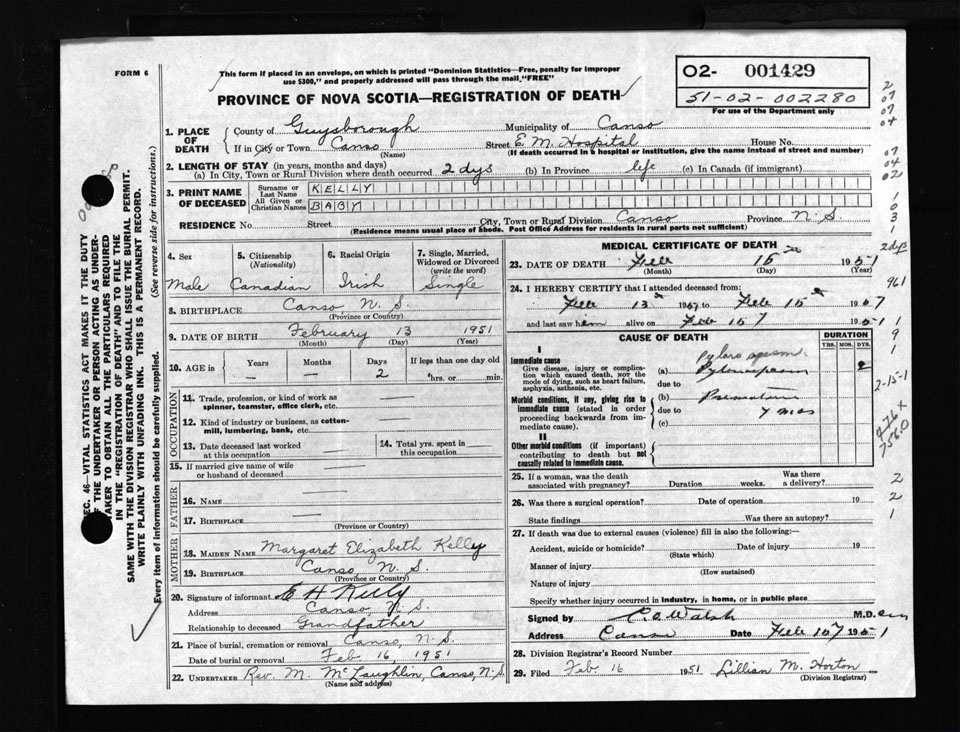 FORM 6
This form if placed in an envelope, on which is printed "Dominion Statistics—Free, penalty for improper
use $300," and properly addressed will pass through the mail "FREE"
PROVINCE OF NOVA SCOTIA—REGISTRATION OF DEATH
02- 001429
51-02-002280
For use of the Department only
1. PLACE OF DEATH
County of Guysborough Municipality of Canso
If in City or Town Canso Street E. M. Hospital House No.
(Name) (If death occurred in a hospital or institution, give the name instead of street and number)
2. LENGTH OF STAY (in years, months and days)
(a) In City, Town or Rural Division where death occurred 2 dys (b) In Province life (c) In Canada (if immigrant)
3. PRINT NAME OF DECEASED
Surname or Last Name KELLY
All Given or Christian Names BABY
RESIDENCE No. Street City, Town or Rural Division Canso Province N. S.
(Residence means usual place of abode. Post Office Address for residents in rural parts not sufficient)
4. Sex Male
5. Citizenship (Nationality) Canadian
6. Racial Origin Irish
7. Single, Married, Widowed or Divorced (write the word) Single
8. BIRTHPLACE Canso N. S.
(Province or Country)
9. DATE OF BIRTH February 13 1951
(Month) (Day) (Year)
10. AGE in Years — Months — Days 2 If less than one day old hrs. or min.
OCCUPATION
11. Trade, profession, or kind of work as spinner, teamster, office clerk, etc.
12. Kind of industry or business, as cotton-mill, lumbering, bank, etc.
13. Date deceased last worked at this occupation
14. Total yrs. spent in this occupation
15. If married give name of wife or husband of deceased
FATHER
16. NAME
17. BIRTHPLACE
(Province or Country)
MOTHER
18. MAIDEN NAME Margaret Elizabeth Kelly
19. BIRTHPLACE Canso, N. S.
(Province or Country)
20. Signature of informant E H Kelly
Address Canso, N. S.
Relationship to deceased Grandfather
21. Place of burial, cremation or removal Canso, N. S.
Date of burial or removal Feb. 16, 1951
22. UNDERTAKER Rev. M. McLaughlin, Canso, N.S.
(Name and address)
MEDICAL CERTIFICATE OF DEATH
23. DATE OF DEATH Feb 15 1951
(Month) (Day) (Year)
24. I HEREBY CERTIFY that I attended deceased from:
Feb 13 to Feb 15
and last saw him alive on Feb 15 1951
CAUSE OF DEATH
DURATION
YRS. MOS. DYS.
I
Immediate cause
Give disease, injury or complication which caused death, not the mode of dying, such as heart failure, asphyxia, asthenia, etc.
(a) Pylorospasm
due to
Morbid conditions, if any, giving rise to immediate cause (stated in order proceeding backwards from immediate cause).
(b) Premature
due to 7 mos
(c)
II
Other morbid conditions (if important) contributing to death but not causally related to immediate cause.
25. If a woman, was the death associated with pregnancy? Duration weeks. Was there a delivery?
26. Was there a surgical operation? Date of operation 19
State findings Was there an autopsy?
27. If death was due to external causes (violence) fill in also the following:—
Accident, suicide or homicide? Date of injury 19
(State which)
Manner of injury
(How sustained)
Nature of injury
Specify whether injury occurred in industry, in home, or in public place
Signed by C. O. Walsh M.D.
Address Canso Date Feb 15 1951
28. Division Registrar's Record Number
29. Filed Feb. 16 1951 Lillian M. Horton
(Division Registrar)
SEC. 46—VITAL STATISTICS ACT MAKES IT THE DUTY
OF THE UNDERTAKER OR PERSON ACTING AS UNDERTAKER TO OBTAIN ALL THE PARTICULARS REQUIRED
IN THE "REGISTRATION OF DEATH" AND TO FILE THE
SAME WITH THE DIVISION REGISTRAR WHO SHALL ISSUE THE BURIAL PERMIT.
WRITE PLAINLY WITH UNFADING INK. THIS IS A PERMANENT RECORD.
Every item of information should be carefully supplied. (See reverse side for instructions.)
2
07
07
04
07
04
02
1
0
3
1
2 dys
961
1
9
1
2-15-1
776 X
756.0
2
2
1